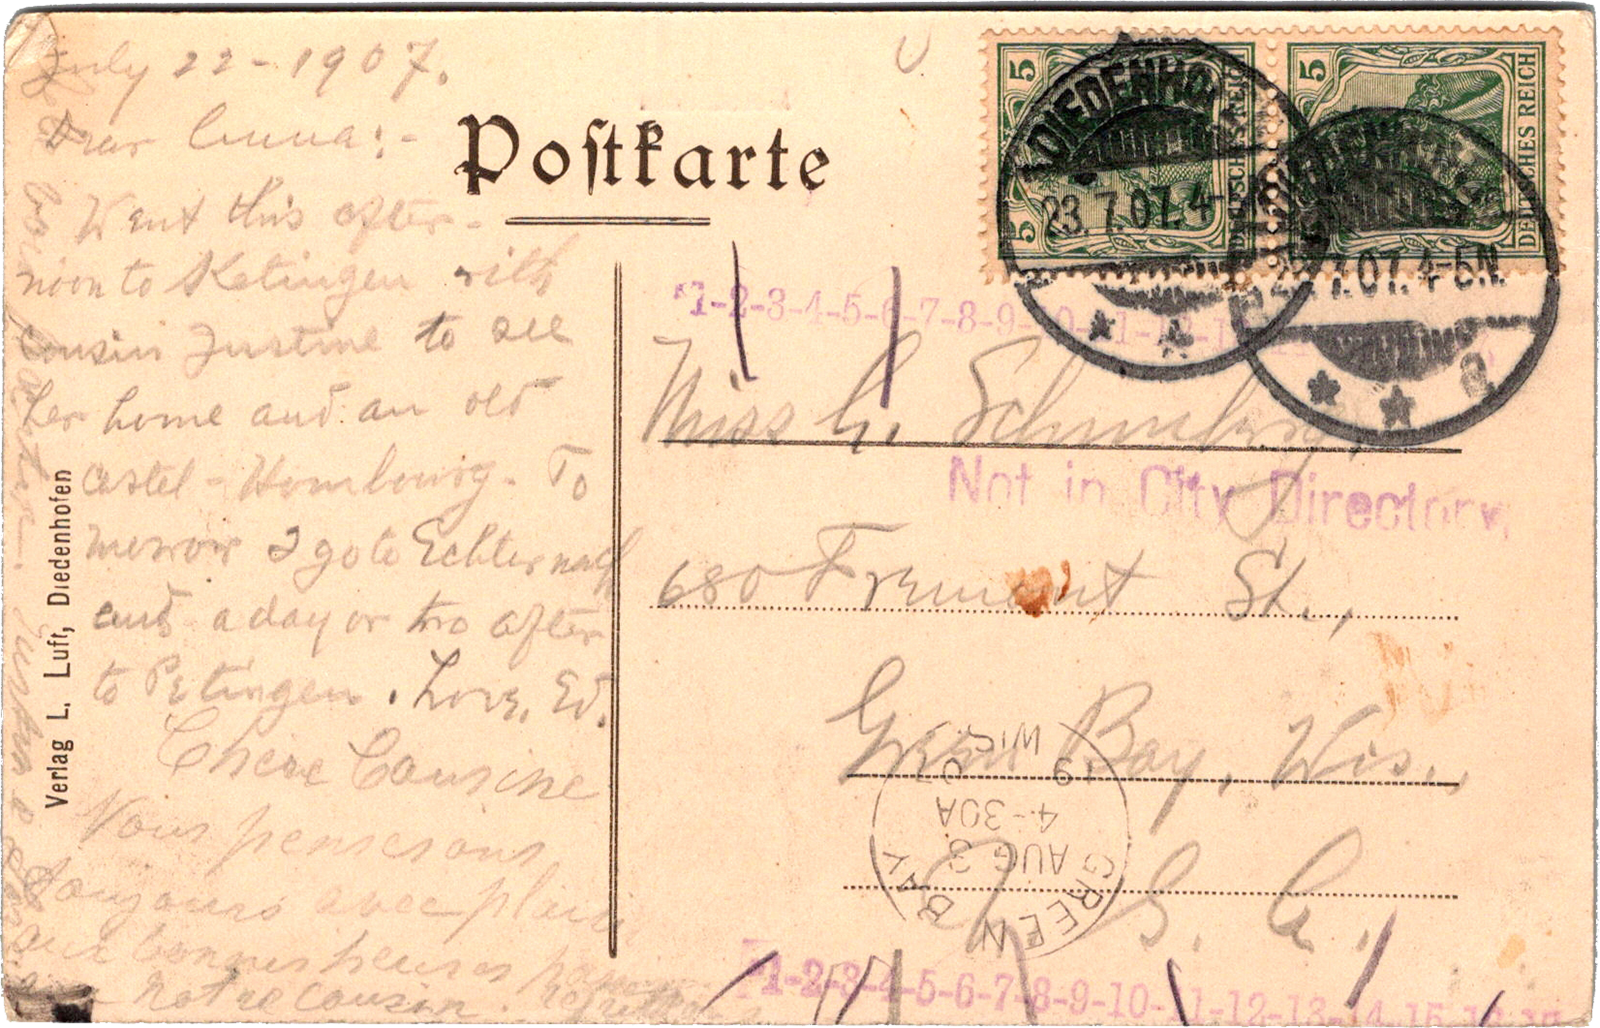 July 22-1907.
Dear Anna:-
Went this after-
noon to Ketingen with
cousin Justine to see
her home and an old
castel - Hombourg. To
morrow I go to Echternach
and a day or two after
to Petingen. Love, Ed.
Chère Cousine
Nous penserons
toujours avec plaisir
aux bonnes heures
notre cousin.
Verlag L. Luft, Diedenhofen
Postkarte
5 DEUTSCHES REICH
5 DEUTSCHES REICH
5
DIEDENHOFEN
23.7.07.4-
7.07.4-5N.
a
1-2-3-4-5-6-7-8-9-10-11-12-13
Miss A. Schumberg,
Not in City Directory,
680 Fremont St.,
Green Bay, Wis.,
U. S. A.,
GREEN BAY
WIS.
AUG 3
4-30A
1907
1-2-3-4-5-6-7-8-9-10-11-12-13-14-15-16-17